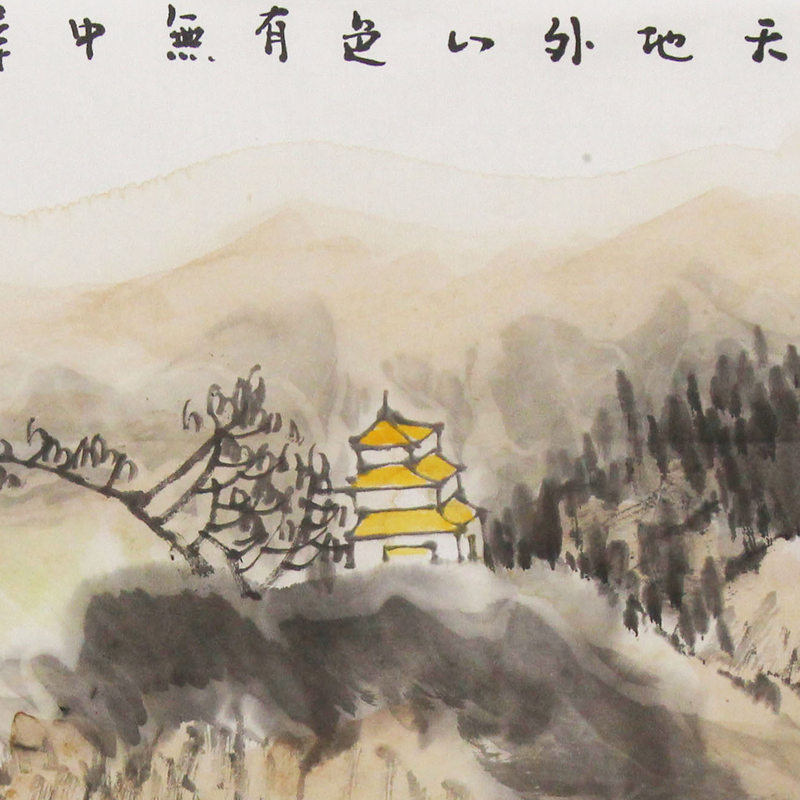 天地外山色有無中